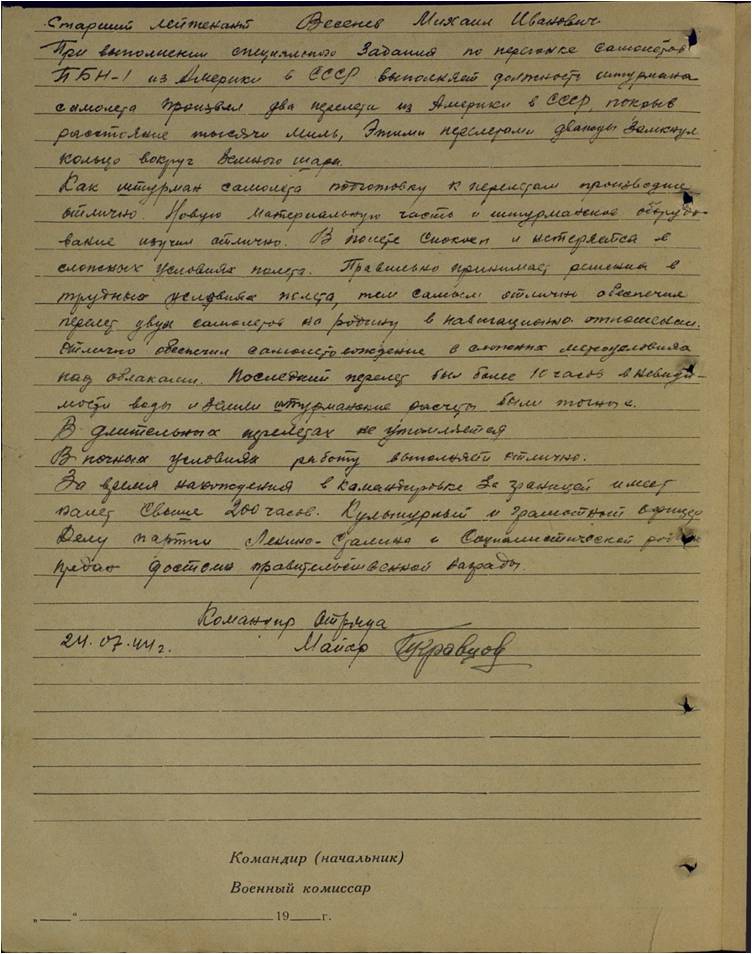 Старший лейтенант Весенев Михаил Иванович
При выполнении специального задания по перегонке самолетов
ПБН-1 из Америки в СССР выполняя должность штурмана
самолета произвел два перелета из Америки в СССР, покрыв
расстояние тысячи миль, Этими перелетами дважды замкнул
кольцо вокруг земного шара.
Как штурман самолета подготовку к перелетам производил
отлично. Новую материальную часть и штурманское оборудо-
вание изучил отлично. В полете спокоен и не теряется в
сложных условиях полета. Правильно принимает решения в
трудных условиях полета, тем самым отлично обеспечил
перелет двух самолетов на родину в навигационно отношении.
Отлично обеспечил самолетовождение в сложных метеоусловиях
над облаками. Последний перелет был более 10 часов в невиди-
мости воды и земли штурманские расчеты были точные.
В длительных перелетах не утомляется
В ночных условиях работу выполняет отлично.
За время нахождения в командировке за границей имеет
налет свыше 200 часов. Культурный и грамотный офицер
Делу партии Ленина-Сталина и Социалистической родине
предан достоин правительственной награды.
Командир отряда
24.07.44г. Майор Кравцов
Командир (начальник)
Военный комиссар
„____“ ____________ 19___г.